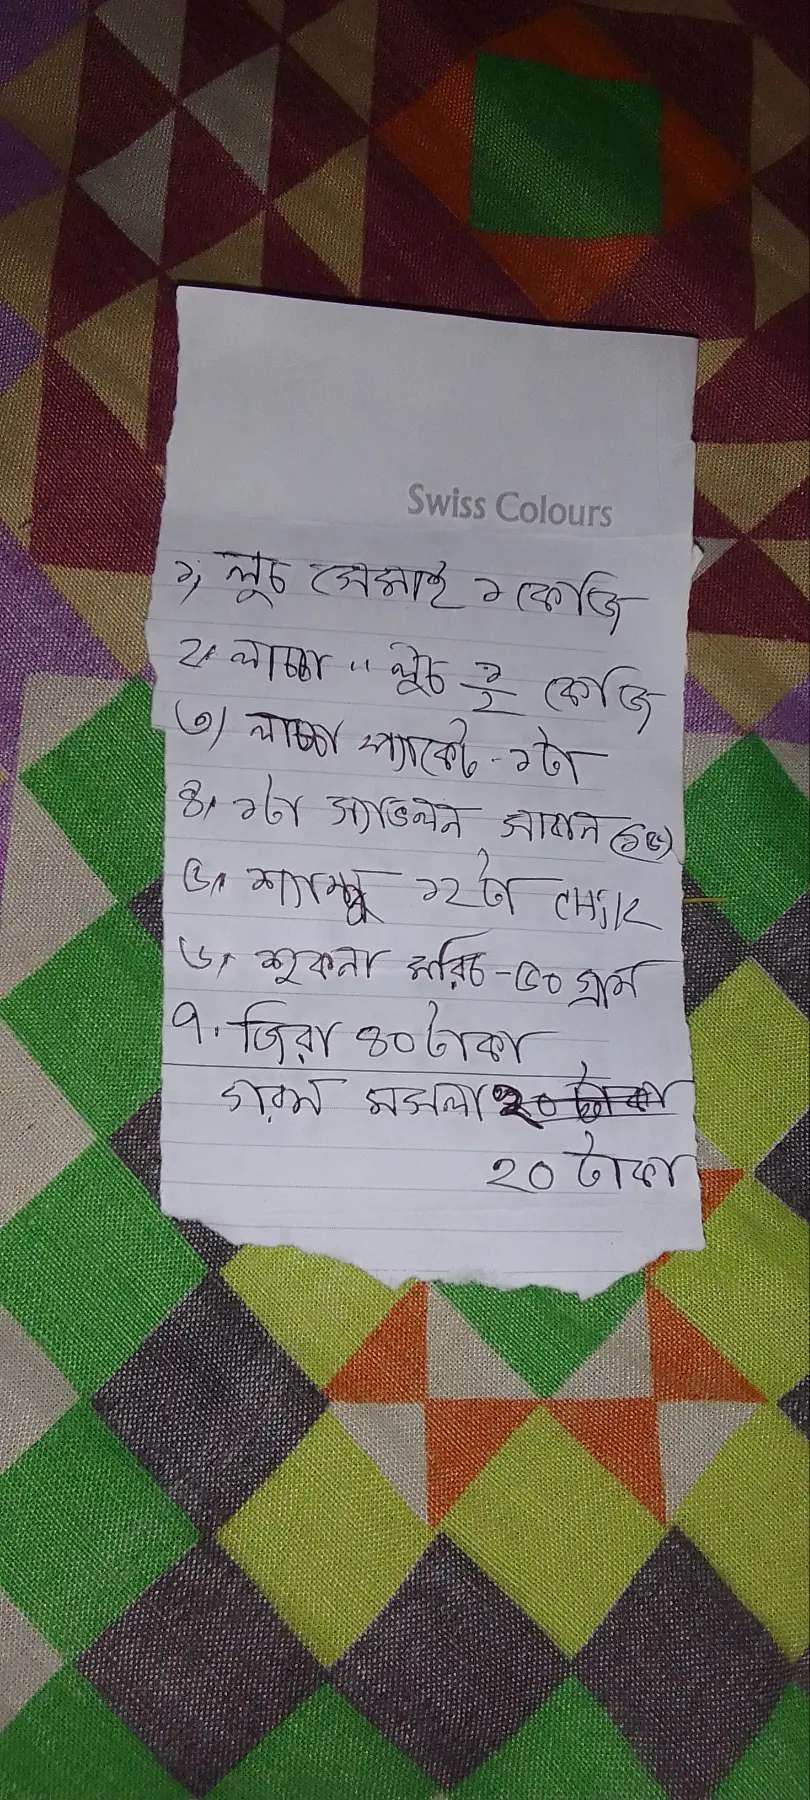 Swiss Colours
১, লুচ সেমাই ১ কেজি
২, লাচ্ছা " লুচ ১/২ কেজি
৩) লাচ্ছা প্যাকেট - ১টা
৪, ১টা স্যাভলন সাবান
৫, শ্যাম্পু ১২টা
৬, শুকনা মরিচ - ৫০ গ্রাম
৭. জিরা ৪০ টাকা
গরম মসলা
২০ টাকা